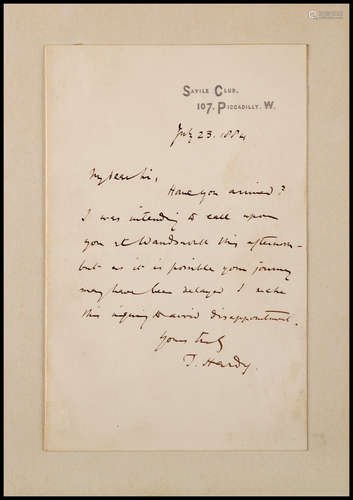 SAVILE CLUB.
107, PICCADILLY. W.
July 23. 1884
My dear Sir,
Have you arrived?
I was intending to call upon
you at Wandsworth this afternoon -
but as it is possible your journey
may have been delayed I write
this inquiry to avoid disappointment.
Yours truly
T. Hardy.